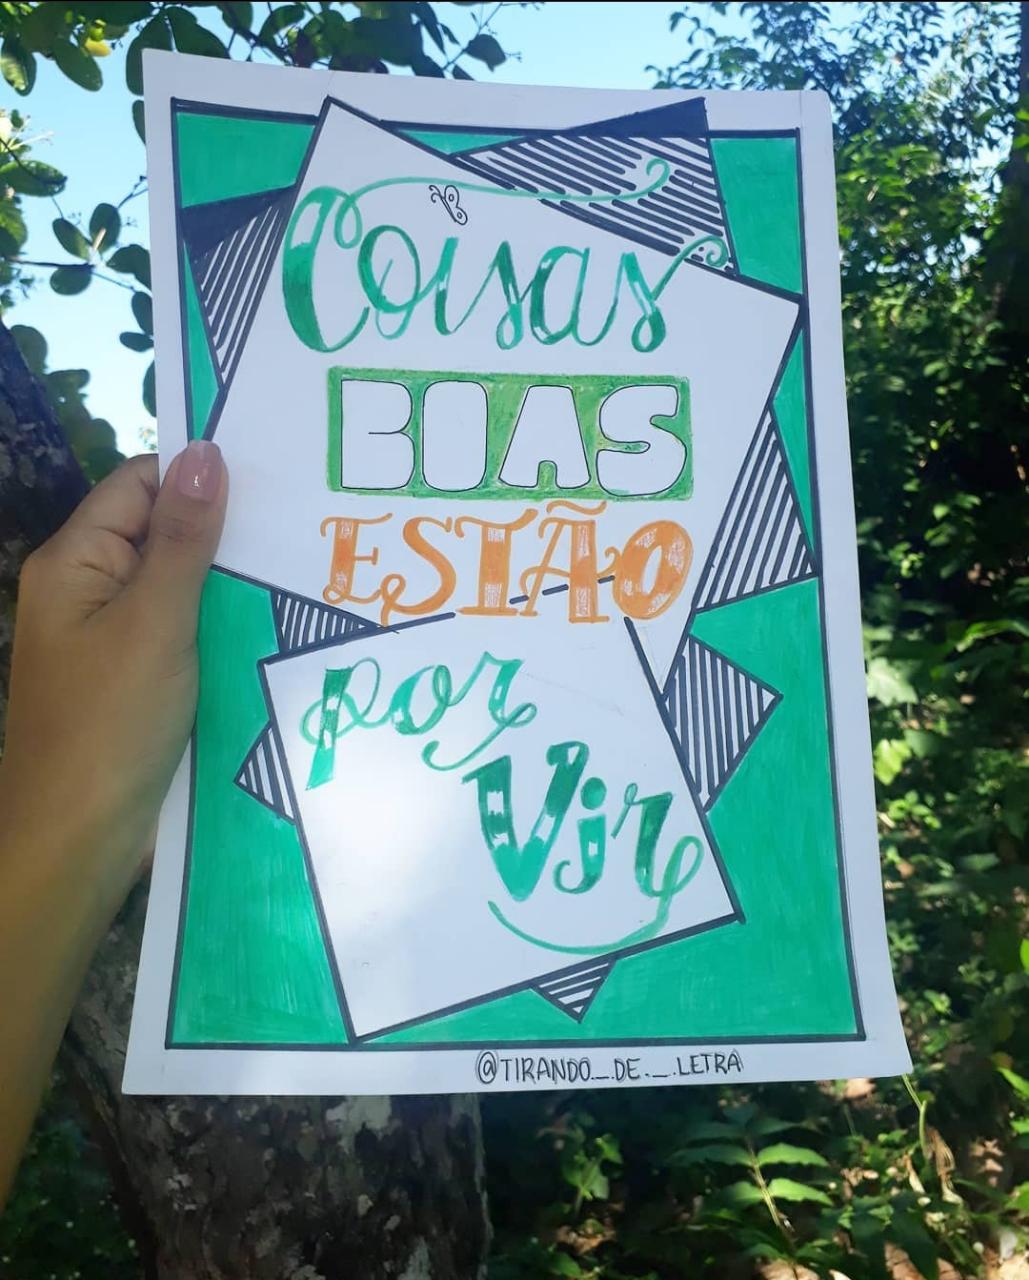 Coisas
BOAS
ESTÃO
por
Vir
@TIRANDO_._DE_._LETRA